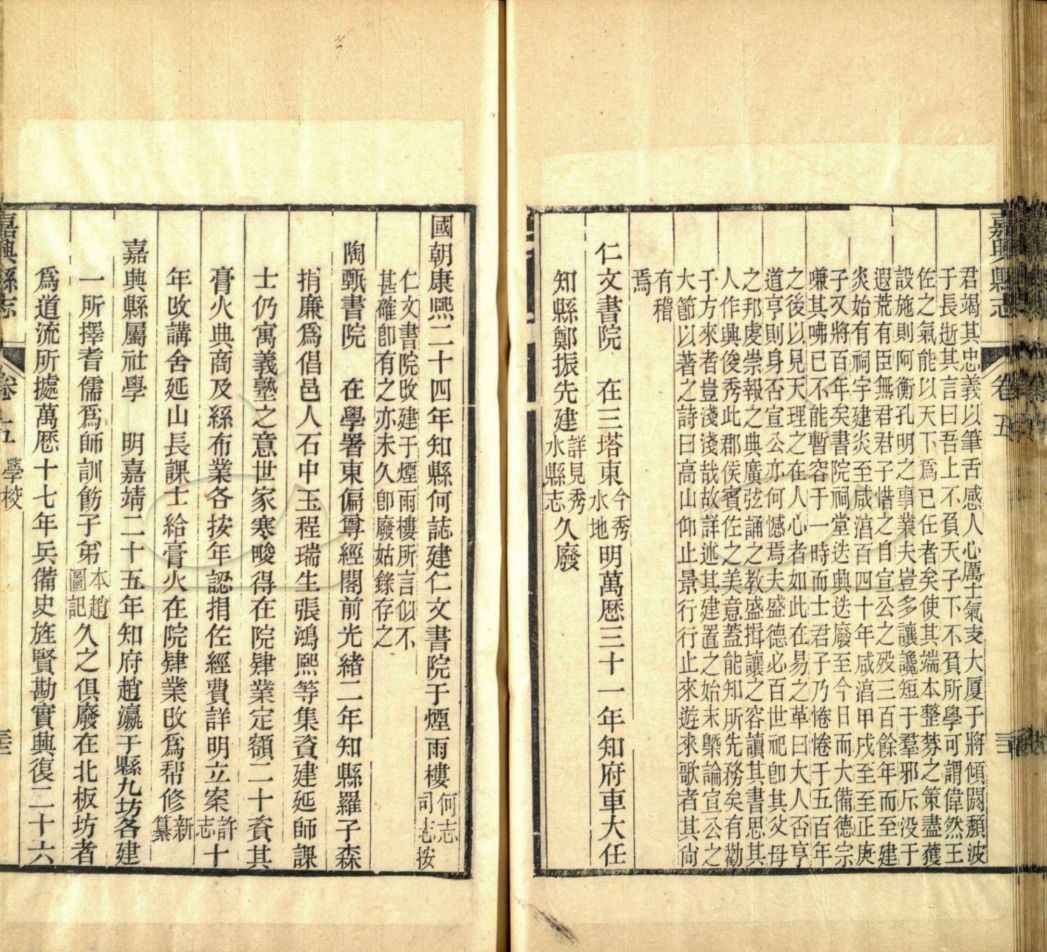 嘉興縣志
卷五
君竭其忠義以筆舌感人心厲士氣支大厦于將傾闘頽波
于長逝其言曰吾上不負天子下不負所學可謂偉然王
佐之氣能以天下爲已任者矣使其端本整勢之策盡獲
設施則阿衡孔明之事業夫豈多讓讒短于羣邪斥没于
遐荒有臣無君君子惜之自宣公之殁三百餘年而至建
炎始有祠宇建炎至咸淯百四十年咸淯甲戌至至正庚
子又將百年矣書院祠堂迭典迭廢至今日而大備德宗
嗛其咈已不能暫容于一時而士君子乃惓惓于五百年
之後以見天理之在人心者如此在易之革曰大人否亨
道亨則身否宣公亦何憾焉夫盛德必百世祀卽其父母
之邦虔崇報之典廣弦誦之教盛揖讓之容讀其書思其
人作興俊秀此郡侯賓佐之美意蓋能知所先務矣有勸
于方來者豈淺淺哉故詳述其建置之始末槩論宣公之
大節以著之詩曰高山仰止景行行止來遊來歌者其尚
有稽
焉
仁文書院　在三塔東今秀水地明萬歷三十一年知府車大任
知縣鄭振先建詳見秀水縣志久廢
國朝康熙二十四年知縣何誌建仁文書院于煙雨樓何志司志按
仁文書院攺建于煙雨樓所言似不
甚確卽有之亦未久卽廢姑錄存之
陶甄書院　在學署東偏尊經閣前光緒二年知縣羅子森
捐廉爲倡邑人石中玉程瑞生張鴻熙等集資建延師課
士仍寓義塾之意世家寒畯得在院肄業定額二十資其
膏火典商及絲布業各按年認捐佐經費詳明立案許志十
年攺講舍延山長課士給膏火在院肄業攺爲帮修新纂
嘉興縣屬社學　明嘉靖二十五年知府趙瀛于縣九坊各建
一所擇耆儒爲師訓飭子弟本趙圖記久之俱廢在北板坊者
爲道流所據萬歷十七年兵備史旌賢勘實興復二十六
嘉興縣志
卷五　學校